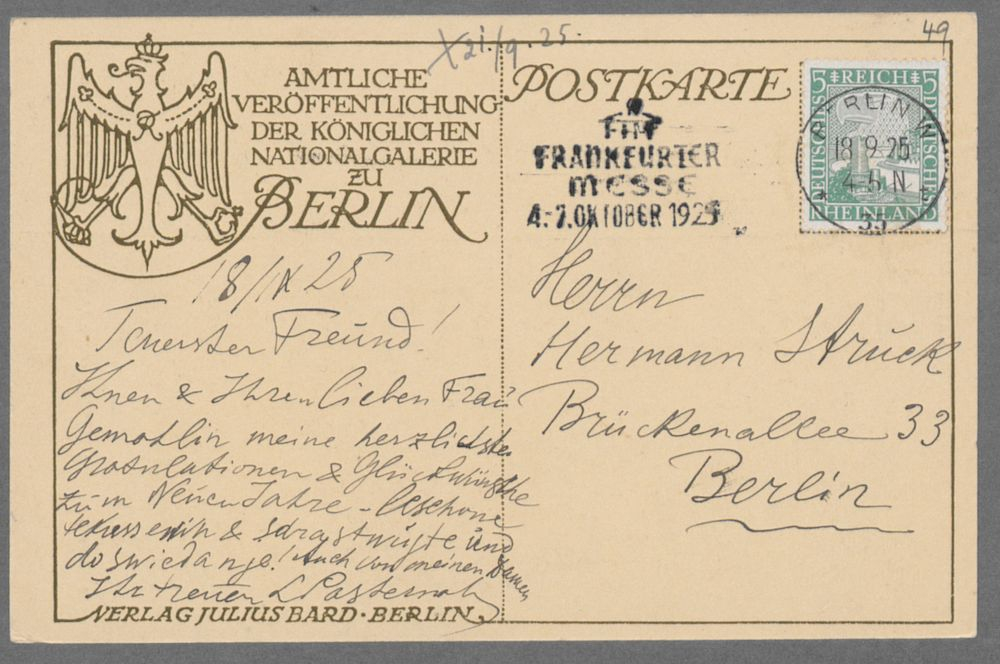 49
X 21/9. 25.
AMTLICHE
VERÖFFENTLICHUNG
DER KÖNIGLICHEN
NATIONALGALERIE
ZU
BERLIN
POSTKARTE
FRANKFURTER
MESSE
4.-7. OKTOBER 1925
5 REICH 5
DEUTSCHES
RHEINLAND
BERLIN W
18.9.25
4-5 N
35
18/IX 25
Teuerster Freund!
Ihnen & Ihrer lieben Frau
Gemahlin meine herzlichsten
Gratulationen & Glückwünsche
zum Neuen Jahre - leschono
& sdrastwujte und
do swidanje! Auch von meinen Damen
Ihr treuer L Pasternak
VERLAG JULIUS BARD · BERLIN
Herrn
Hermann Struck
Brückenallee 33
Berlin